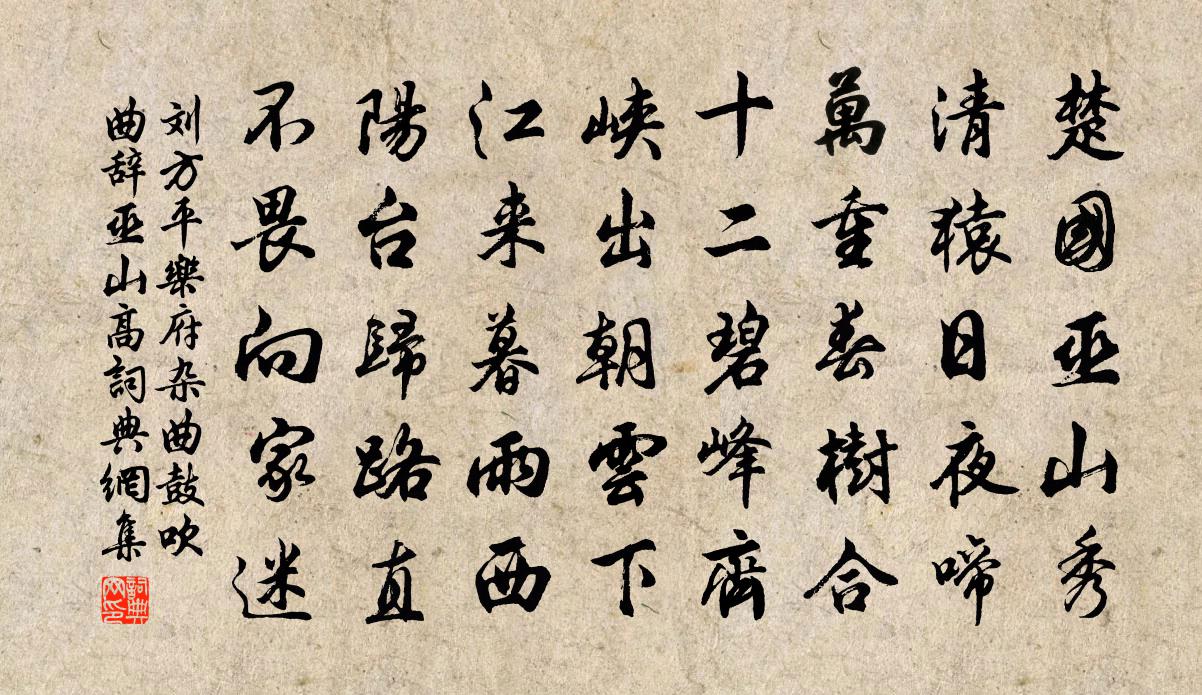 楚國巫山秀
清猿日夜啼
萬重春樹合
十二碧峰齊
峽出朝雲下
江来暮雨西
陽台歸路直
不畏向家迷
刘方平樂府杂曲鼓吹
曲辞巫山高詞典網集
詞典